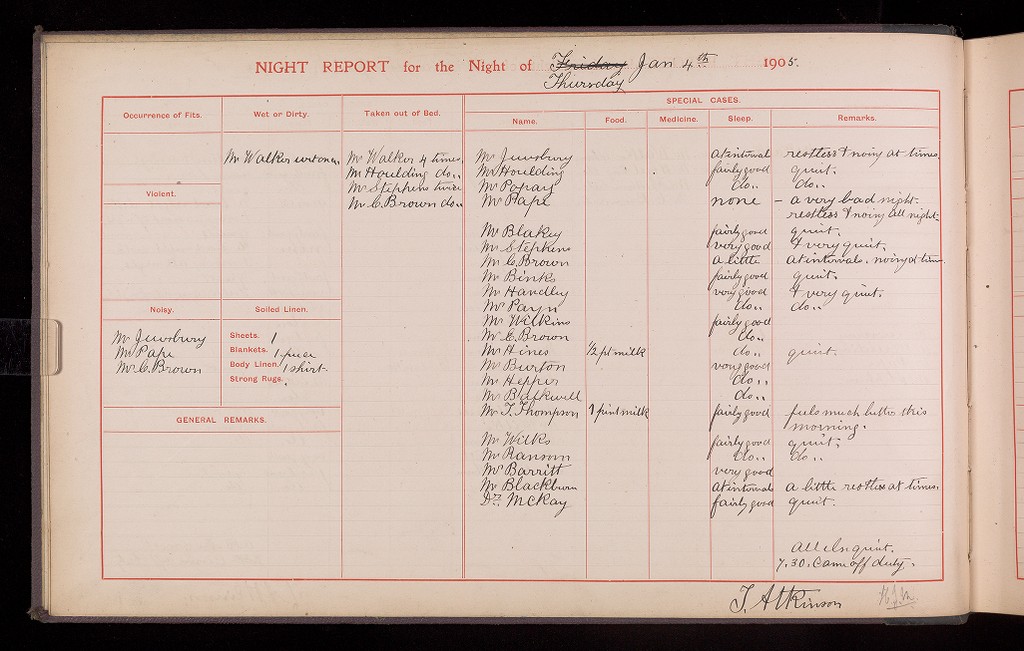 NIGHT REPORT for the Night of Friday Jan 4th 1905.
Thursday
SPECIAL CASES.
Occurrence of Fits. Wet or Dirty. Taken out of Bed. Name. Food. Medicine. Sleep. Remarks.
Mr Walker wet once. Mr Walker 4 times. Mr Jewsbury at interval restless & noisy at times.
Mr Houlding do.. Mr Houlding fairly good quiet.
Mr Stephens twice Mr Popay do.. do..
Violent.
Mr C. Brown do.. Mr Pape none - a very bad night-
restless & noisy all night-
Mr Blakey fairly good quiet.
Mr Stephens very good & very quiet.
Mr C. Brown a little at intervals. noisy at times.
Mr Binks fairly good quiet.
Mr Handley very good & very quiet.
Mr Payn do.. do..
Noisy. Soiled Linen.
Mr Wilkins fairly good
Mr Jewsbury Sheets. 1 Mr E. Brown do..
Mr Pape Blankets. 1 piece Mr Hines 1/2 pt milk do.. quiet.
Mr C. Brown Body Linen. 1 shirt. Mr Burton very good
Strong Rugs. Mr Hepper do..
Mr Balkwill do..
GENERAL REMARKS.
Mr T. Thompson 1 pint milk fairly good feels much better this
morning.
Mr Wilks fairly good quiet.
Mr Ransom do.. do..
Mr Barritt very good
Mr Blackburn at interval a little restless at times.
Dr. McKay fairly good quiet.
All else quiet.
7.30. Came off duty.
T. Atkinson